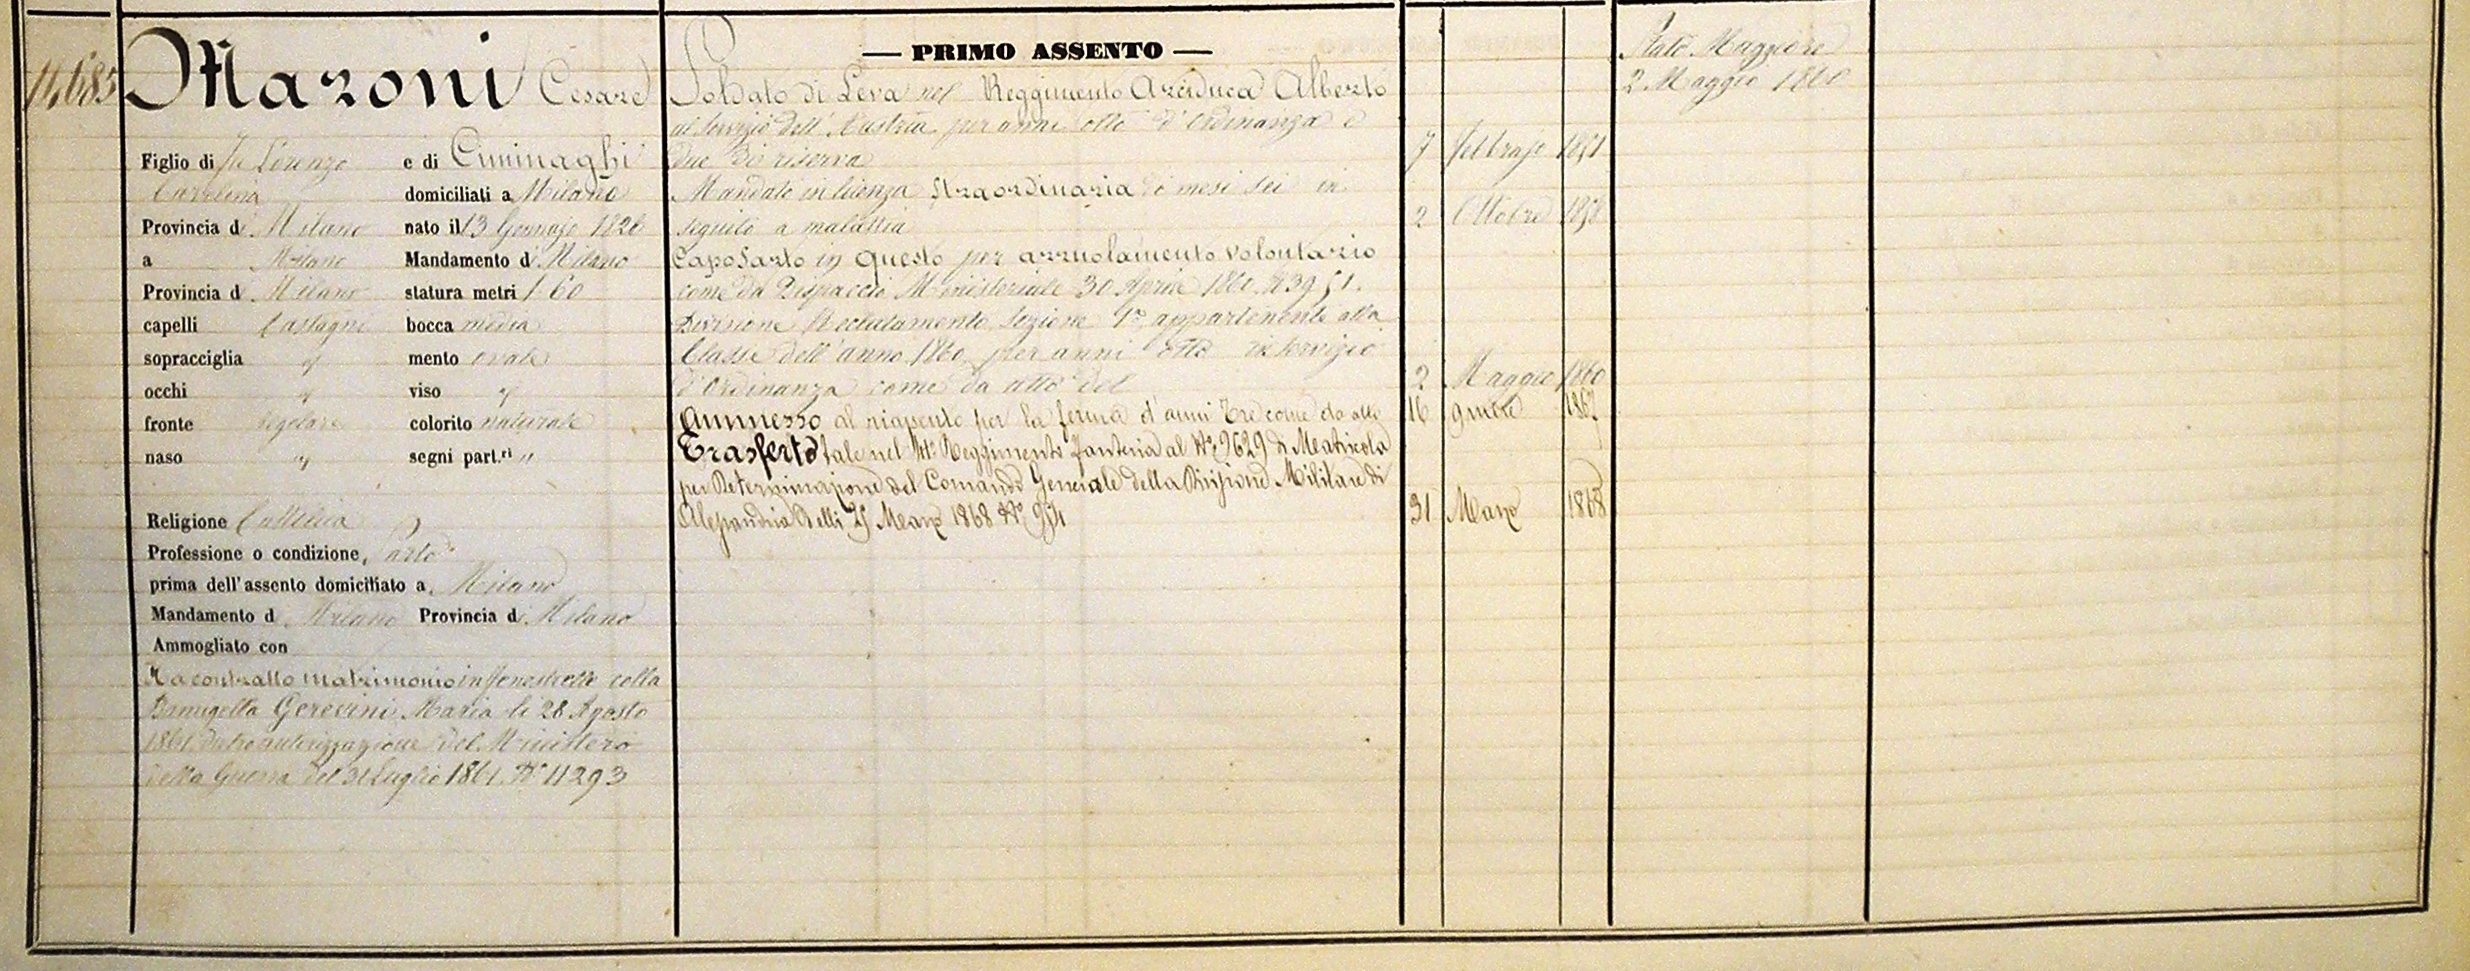 14685
Maroni Cesare
Figlio di fu Lorenzo e di Ciminaghi
Carolina domiciliati a Milano
Provincia di Milano nato il 13 Gennajo 1826
a Milano Mandamento di Milano
Provincia di Milano statura metri 1 60
capelli Castagni bocca media
sopracciglia id mento ovale
occhi id viso id
fronte regolare colorito naturale
naso id segni part.ri "
Religione Cattolica
Professione o condizione, Sarto
prima dell'assento domiciliato a Milano
Mandamento di Milano Provincia di Milano
Ammogliato con
Ha contratto matrimonio in Fenestrelle colla
Damigella Geresini Maria li 28 Agosto
1861 dietro autorizzazione del Ministero
della Guerra del 31 Luglio 1861. N° 11293
— PRIMO ASSENTO —
Soldato di Leva nel Reggimento Arciduca Alberto
al servizio dell'Austria per anni otto d'ordinanza e
due di riserva 7 febbrajo 1851
Mandato in licenza straordinaria di mesi sei in
seguito a malattia 2 Ottobre
Caposarto in questo per arruolamento volontario
come da Dispaccio Ministeriale 30 Aprile 1860. N° 3951.
Divisione Reclutamento Sezione 1a, appartenente alla
Classe dell'anno 1860 per anni otto in servizio
d'Ordinanza come da atto del 2 Maggio 1860
Ammesso al riassento per la ferma d'anni Tre come da atto 16 9mbre 1867
Trasferto tale nel Reggimento fanteria al N° 9629 di Matricola
per Determinazione del Comando Generale della Divisione Militare di
Alessandria delli 25 Marzo 1868 N° 31 Marzo 1868
Stato Maggiore
2 Maggio 1860